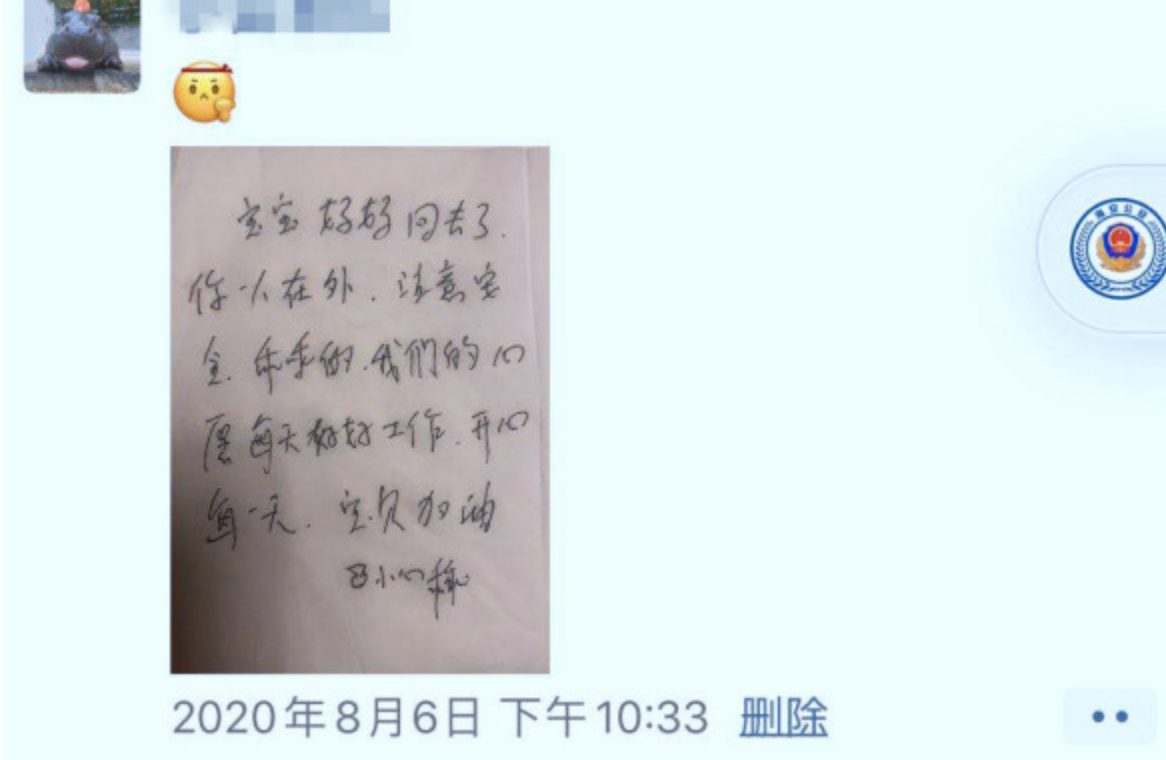 宝宝好好回去了.
你一人在外.注意安
全.乖乖的.我们的心
愿每天好好工作.开心
每一天.宝贝加油
小心
2020年8月6日 下午10:33 删除